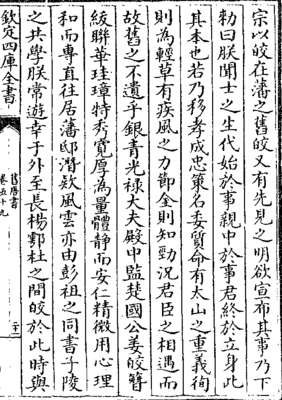 宗以皎在藩之舊皎又有先見之明欲宣布其事乃下
勅曰朕聞士之生代始於事親中於事君終於立身此
其本也若乃移孝成忠策名委質命有太山之重義徇
則為輕草有疾風之力節全則知勁況君臣之相遇而
故舊之不遺乎銀青光禄大夫殿中監楚國公姜皎簪
紱聯華珪璋特秀寛厚為量體静而安仁精微用心理
和而專直往居藩邸潛款風雲亦由彭祖之同書子陵
之共學朕常遊幸于外至長楊鄠杜之間皎於此時與
欽定四庫全書
舊唐書
卷五十九